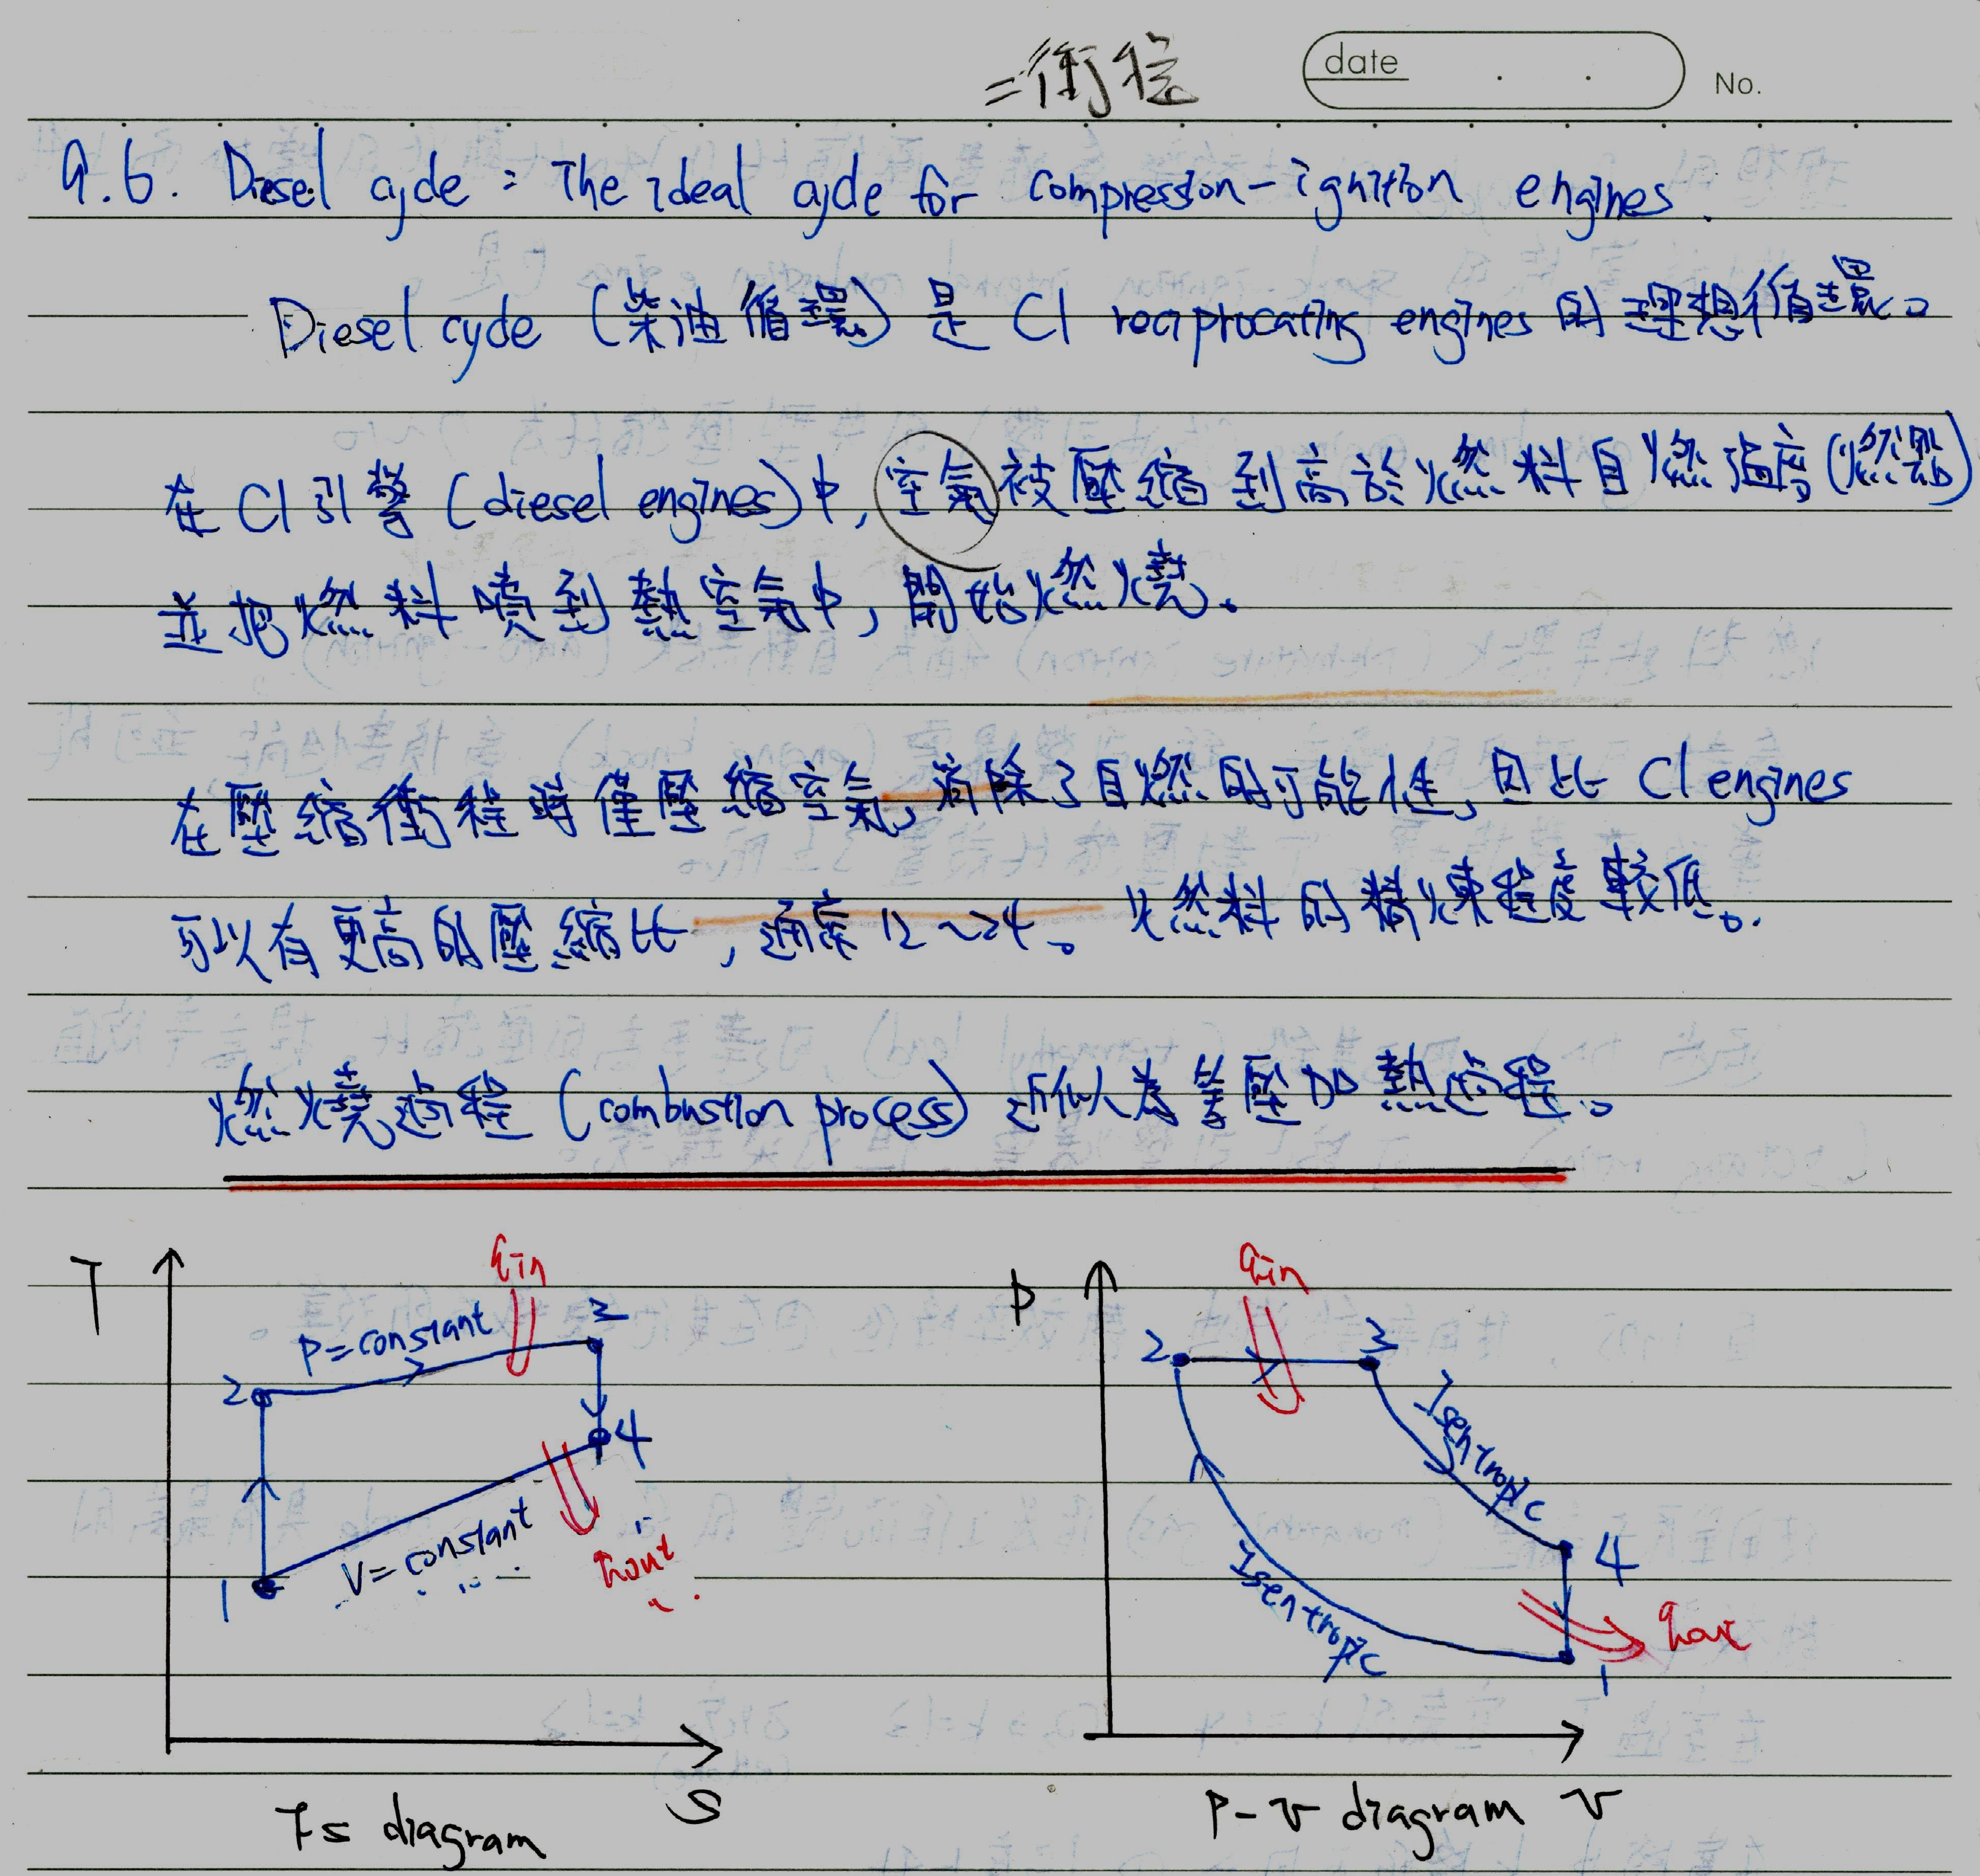 =衝程
date . .
No.
9.6. Diesel cycle : The ideal cycle for compression-ignition engines.
Diesel cycle (柴迪循環) 是 CI reciprocating engines 的理想循環。
在 CI 引擎 (diesel engines)中, 空氣被壓縮到高於燃料自燃溫度(燃點)
並把燃料噴到熱空氣中, 開始燃燒。
在壓縮衝程時僅壓縮空氣, 消除了自燃的可能性, 因此 CI engines
可以有更高的壓縮比, 通常 12~24。燃料的精煉程度較低。
燃燒過程 (combustion process) 近似為等壓加熱過程。
T
qin
P=constant
3
2
4
V=constant
qout
1
S
Ts diagram
P
qin
2
3
Isentropic
4
Isentropic
qout
1
P-v diagram
v